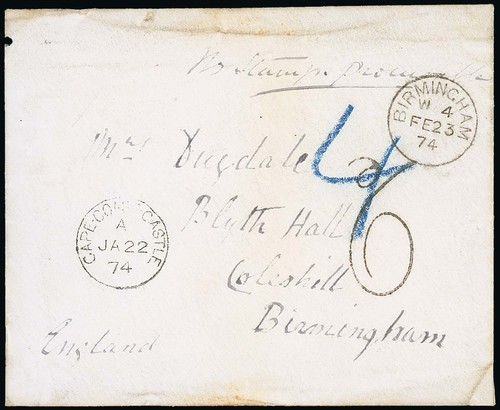 No Stamps procurable
BIRMINGHAM
W 4
FE 23
74
4
6
Mrs Dugdale
Blyth Hall
Coleshill
Birmingham
England
CAPE-COAST CASTLE
A
JA 22
74